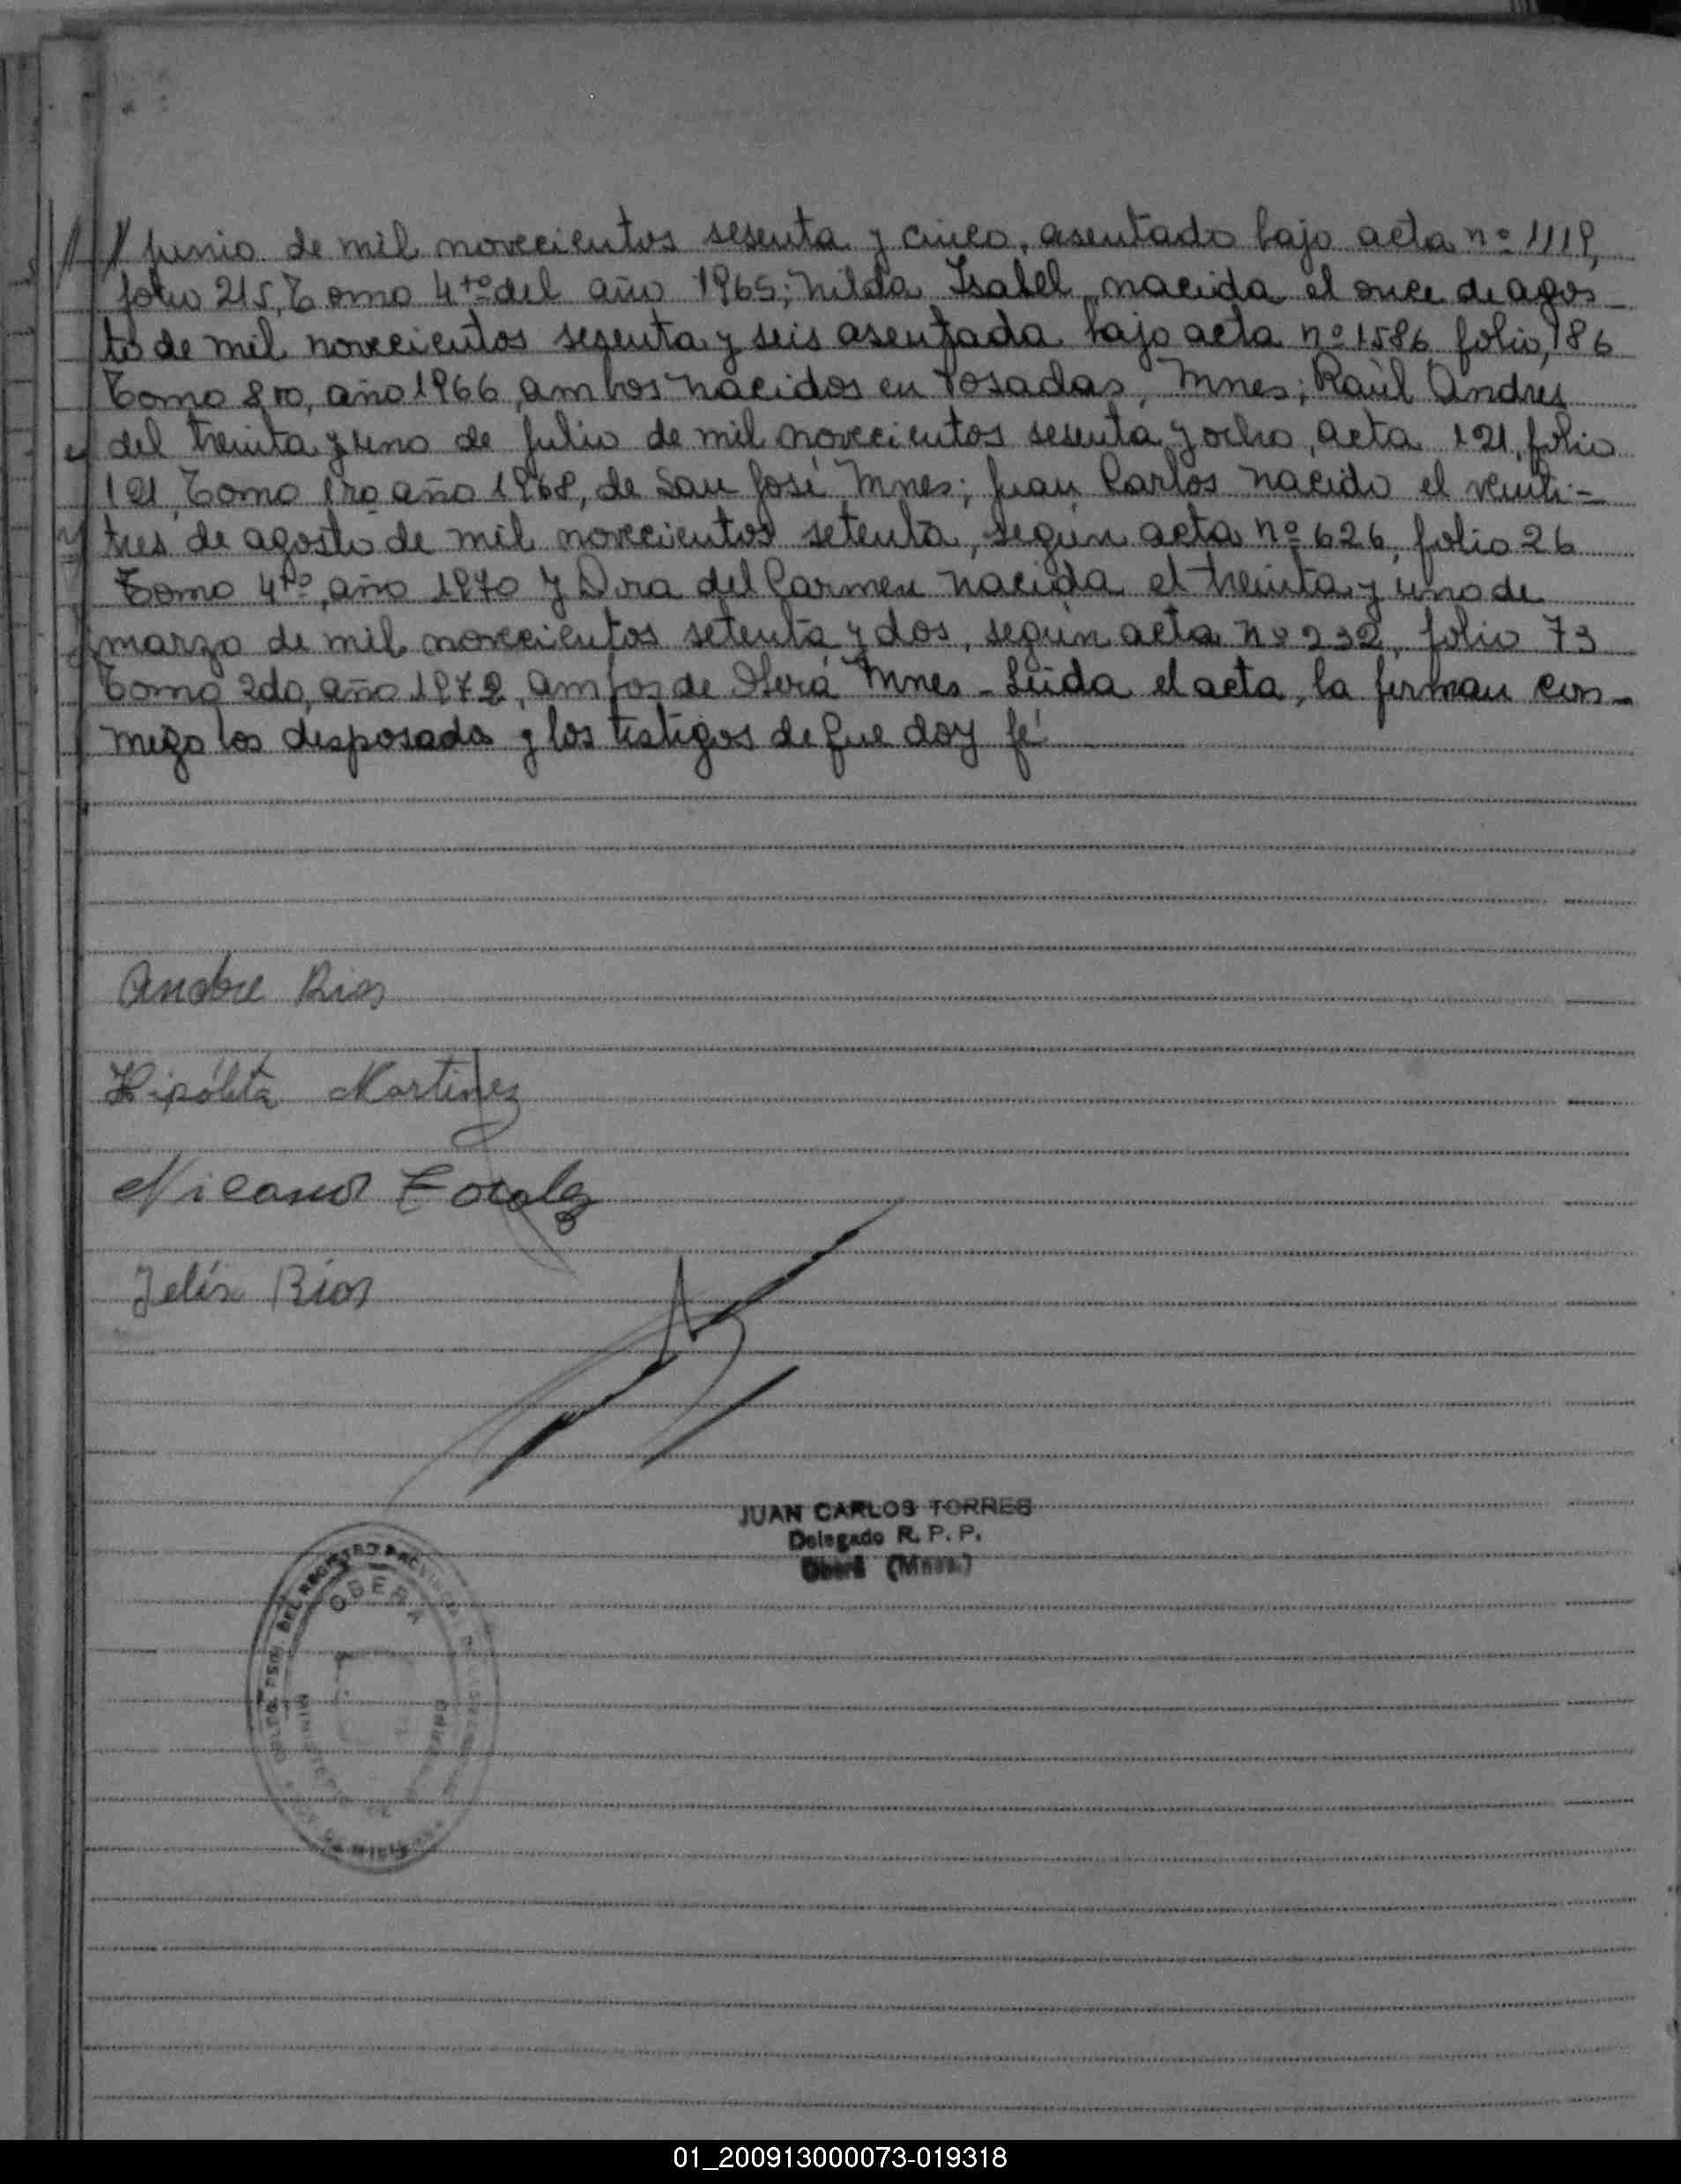 // junio de mil novecientos sesenta y cinco, asentado bajo acta nº 1119,
folio 215, Tomo 4to del año 1965; Nilda Isabel, nacida el once de agos
to de mil novecientos sesenta y seis asentada bajo acta nº 1586 folio, 186
Tomo 8vo, año 1966, ambos nacidos en Posadas, Mnes; Raúl Andres
del treinta y uno de julio de mil novecientos sesenta y ocho, acta 121, folio
121, Tomo 1ro año 1968, de San José Mnes; Juan Carlos nacido el veinti-
tres de agosto de mil novecientos setenta, según acta nº 626, folio 26
Tomo 4to, año 1970 y Dora del Carmen nacida el treinta y uno de
marzo de mil novecientos setenta y dos, según acta nº 232, folio 73
Tomo 2do, año 1972, ambos de Oberá Mnes - Leida el acta, la firman con-
migo los desposados y los testigos de que doy fé
Andre Rios
Hipólita Martinez
Nicanor
Felix Rios
JUAN CARLOS TORRES
Delegado R. P. P.
Oberá (Mnes.)
DEL REGISTRO PROVINCIAL
OBERA
01_200913000073-019318